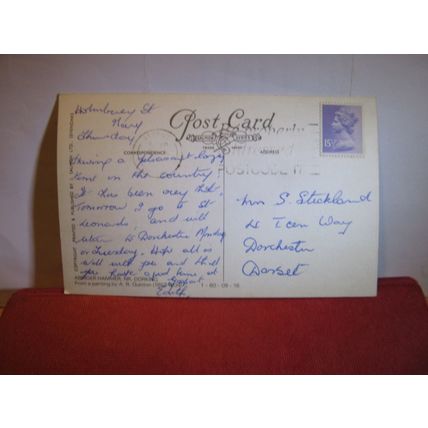 Holmbury St
Mary
Thursday
Post Card
CORRESPONDENCE
ADDRESS
15P
POSTCODE IT
Having a pleasant lazy
time in the country
It has been very hot.
Tomorrow I go to St
Leonards, and will
return to Dorchester Monday
or Tuesday. Hope all is
well with you and that
you have a good time at
Edith
Mrs S. Strickland
Way
Dorchester
Dorset
ABINGER HAMMER, NR. DORKING
From a painting by A. R. Quinton
1 - 60 - 09 - 16